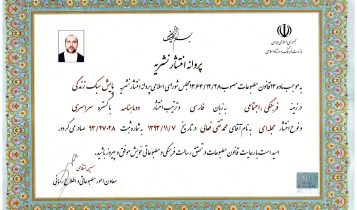 جمهوری اسلامی ایران
پروانه انتشار نشریه
به موجب ماده ۱۳ قانون مطبوعات مصوب ۱۳۶۴/۱۲/۲۸ مجلس شورای اسلامی پروانه انتشار نشریه پایش سبک زندگی
در زمینه فرهنگی، اجتماعی به زبان فارسی و ترتیب انتشار دوماهنامه با گستره سراسری
و نوع انتشار مجله‌ای به نام آقای محمدتقی فعالی در تاریخ ۱۳۹۳/۱۱/۷ به شماره ثبت ۹۳/۲۷۰۲۸ صادر می‌گردد.
امید است با رعایت قانون مطبوعات در تحقق رسالت فرهنگی و مطبوعاتی خویش موفق و پیروز باشید.
حسین انتظامی
معاون امور مطبوعاتی و اطلاع رسانی